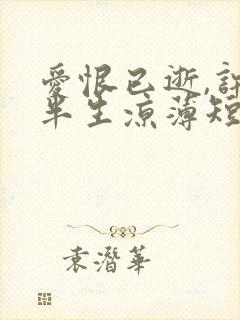 愛恨已逝,許
半生涼薄短
袁潛華